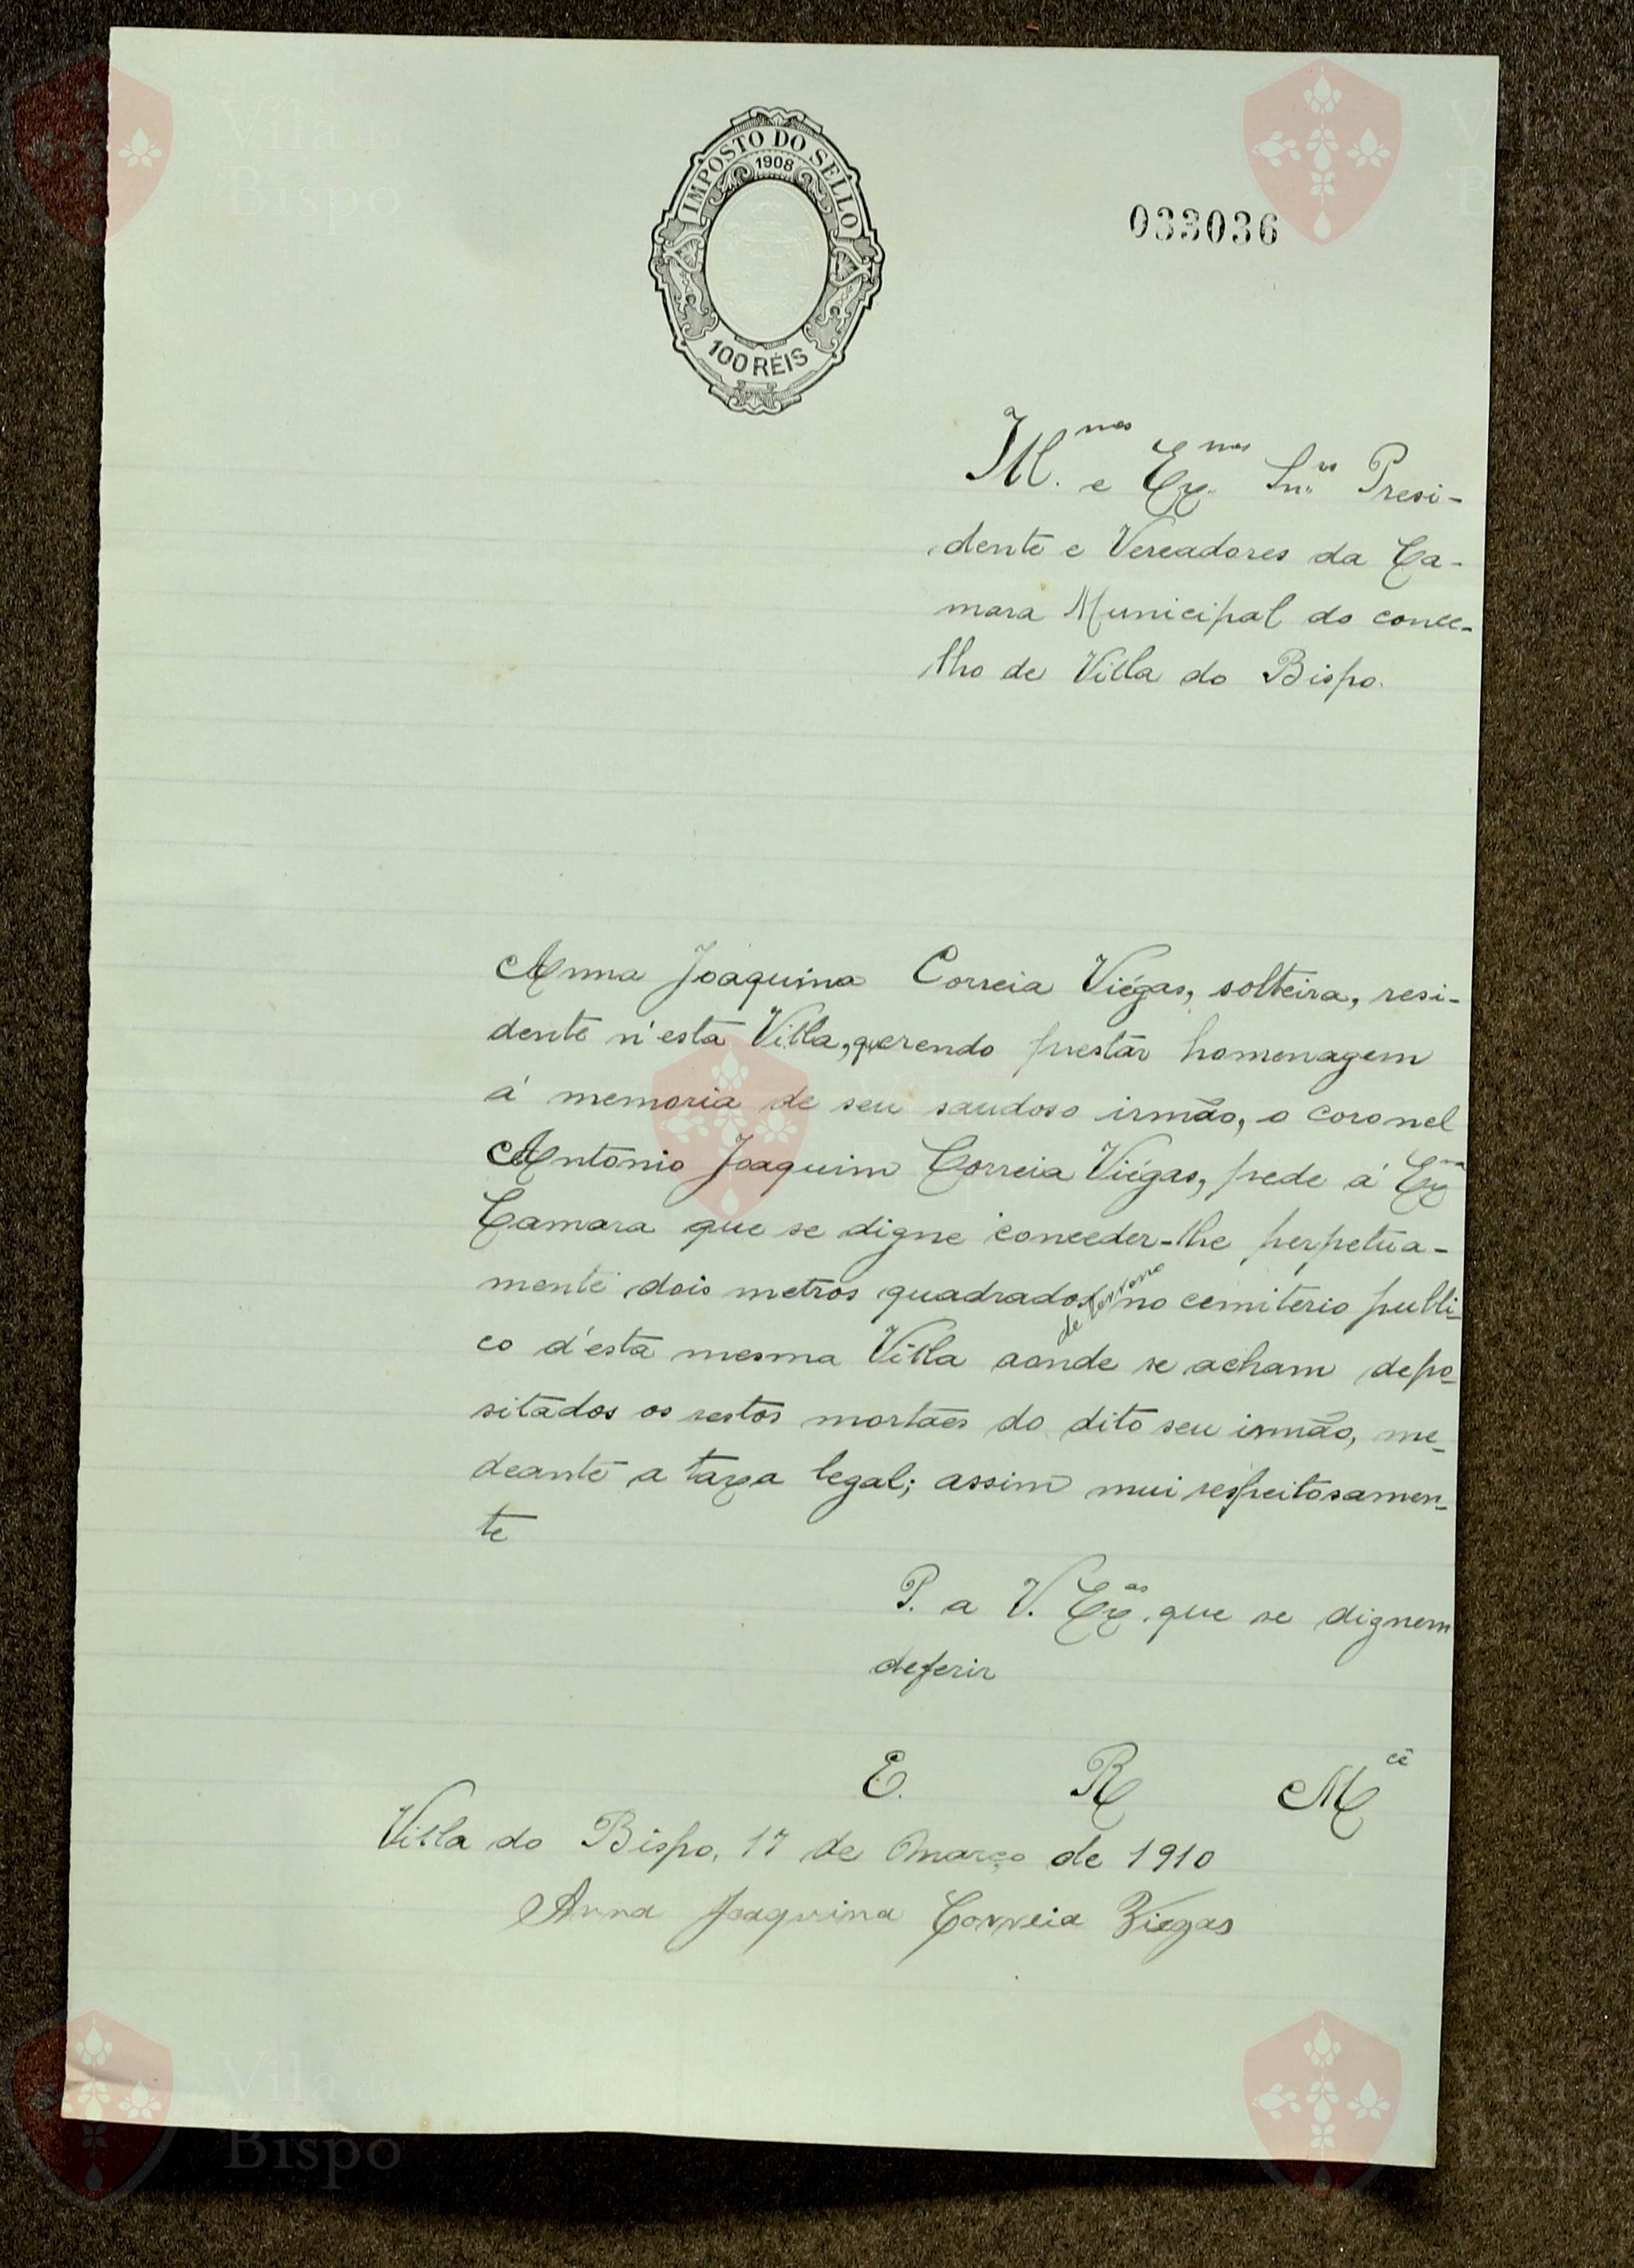 IMPOSTO DO SELLO
1908
100 RÉIS
033036
Ill.mos e Ex.mos Snrs Presi-
dente e Vereadores da Ca-
mara Municipal do conce-
lho de Villa do Bispo.
Anna Joaquina Correia Viégas, solteira, resi-
dente n'esta Villa, querendo prestar homenagem
á memoria de seu saudoso irmão, o coronel
Antonio Joaquim Correia Viégas, pede á Exma
Camara que se digne conceder-lhe perpetua-
mente dois metros quadrados de terreno no cemiterio publi-
co d'esta mesma Villa aonde se acham depo-
sitados os restos mortaes do dito seu irmão, me-
deante a taxa legal; assim mui respeitosamen-
te
P. a V. Ex.as que se dignem
deferir
E. R. Mcê
Villa do Bispo, 17 de Março de 1910
Anna Joaquina Correia Viegas
Vila do
Bispo
Vila do
Bispo